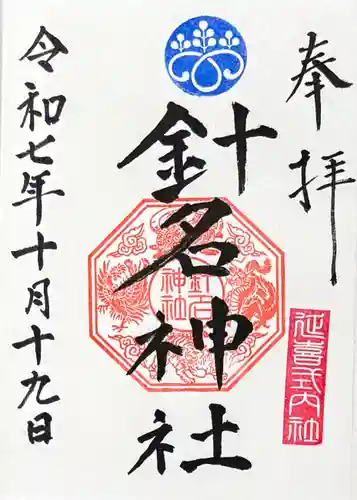 奉拝
延喜式内社
針名神社
針名神社
令和七年十月十九日